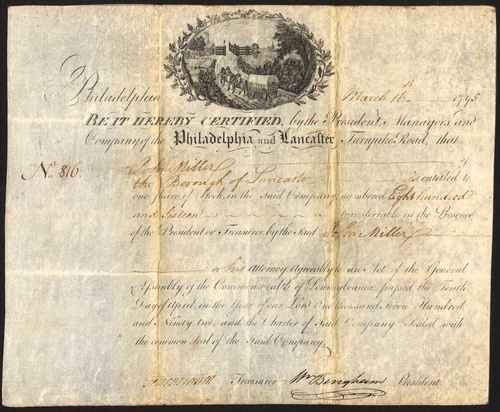 Philadelphia March 16th 1795
BE IT HEREBY CERTIFIED, by the President, Managers, and
Company, of the Philadelphia and Lancaster Turnpike Road, that
No. 816. John Miller of
the Borough of Lancaster is entitled to
one Share of Stock, in the Said Company, numbered Eight hundred
and Sixteen transferrable in the Presence
of the President or Treasurer, by the Said John Miller
or his Attorney Agreeably to an Act of the General
Assembly of the Commonwealth of Pennsylvania, passed the Ninth
Day of April, in the Year of our Lord One thousand Seven Hundred
and Ninety two, and the Charter of Said Company Sealed with
the common Seal of the Said Company
Treasurer Wm Bingham President